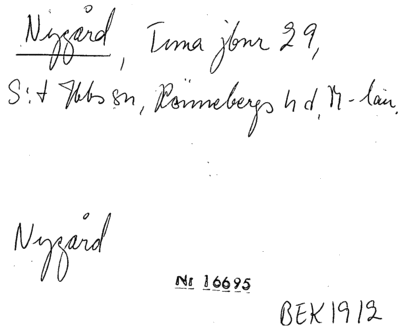 Nygård, Tuna jbnr 29,
S:t Ibbs sn, Rönnebergs hd, M-län.
Nygård
Nr 16695
BEK 1912